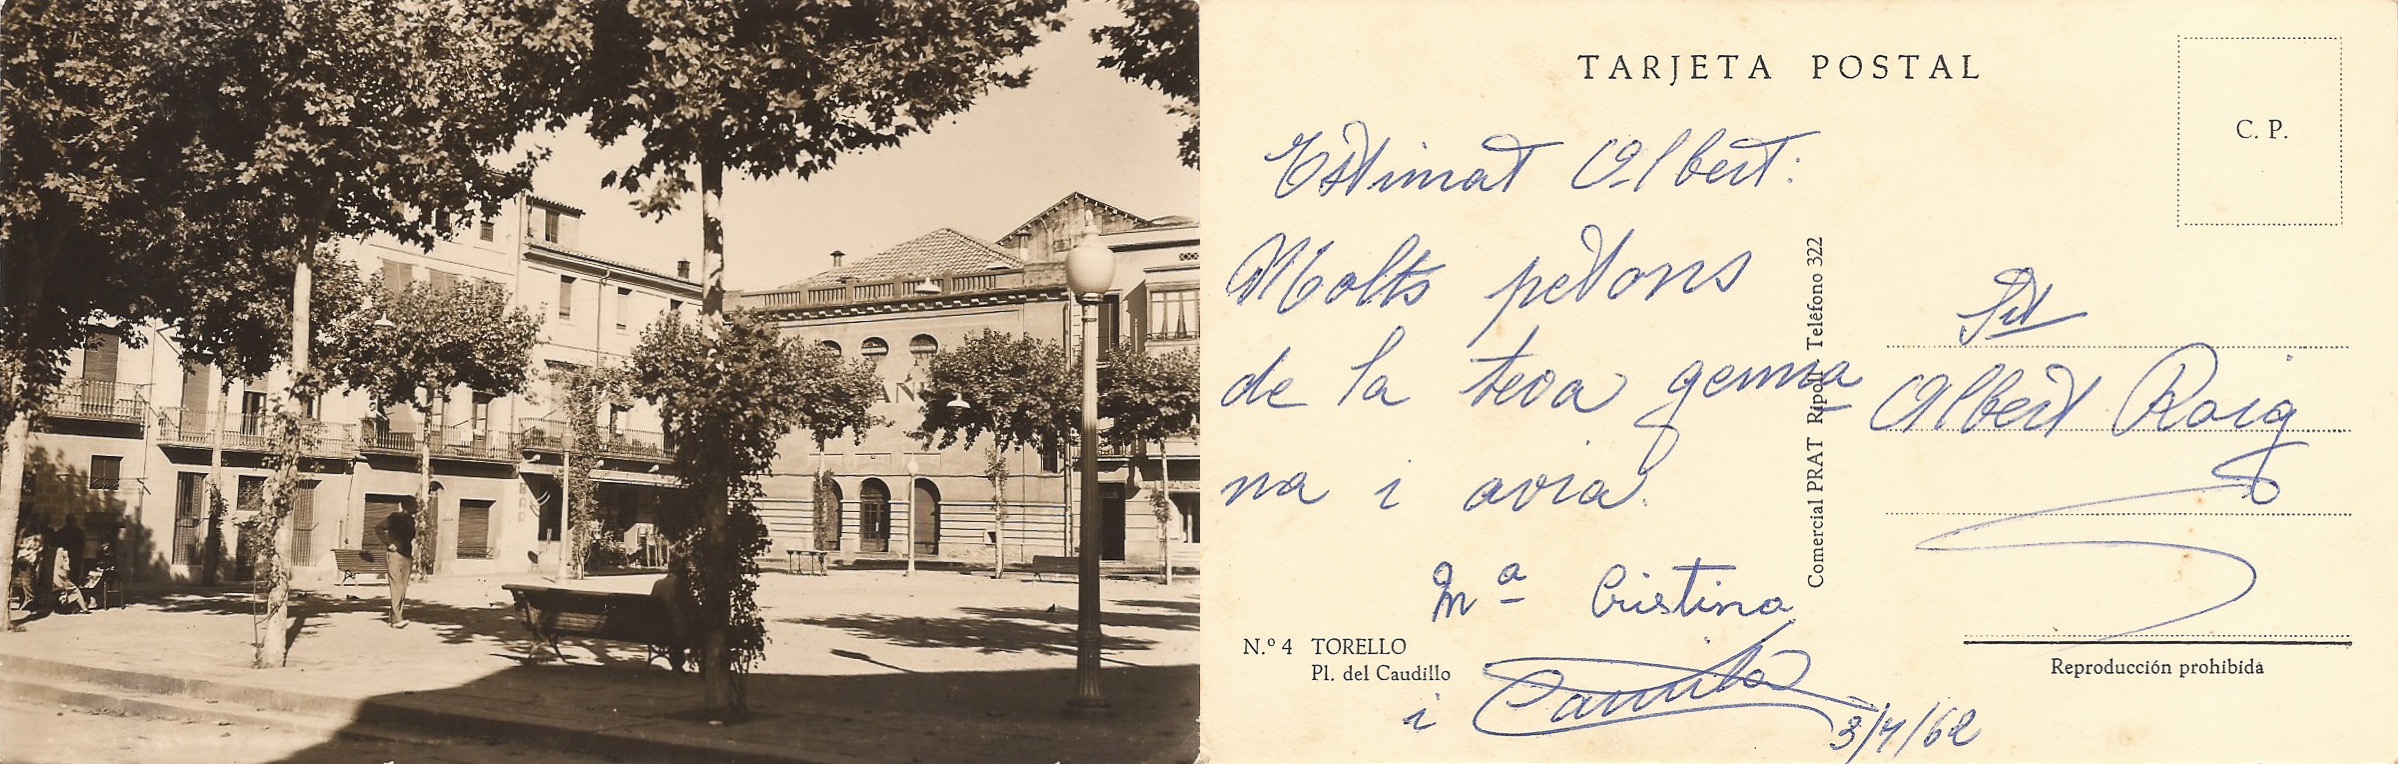 BAR
TARJETA POSTAL
C. P.
Estimat Albert:
Molts petons
de la teva germa
na i avia.
Mª Cristina
i Camila
3/4/62
Sr
Albert Roig
Comercial PRAT Ripoll Teléfono 322
N.º 4 TORELLO
Pl. del Caudillo
Reproducción prohibida